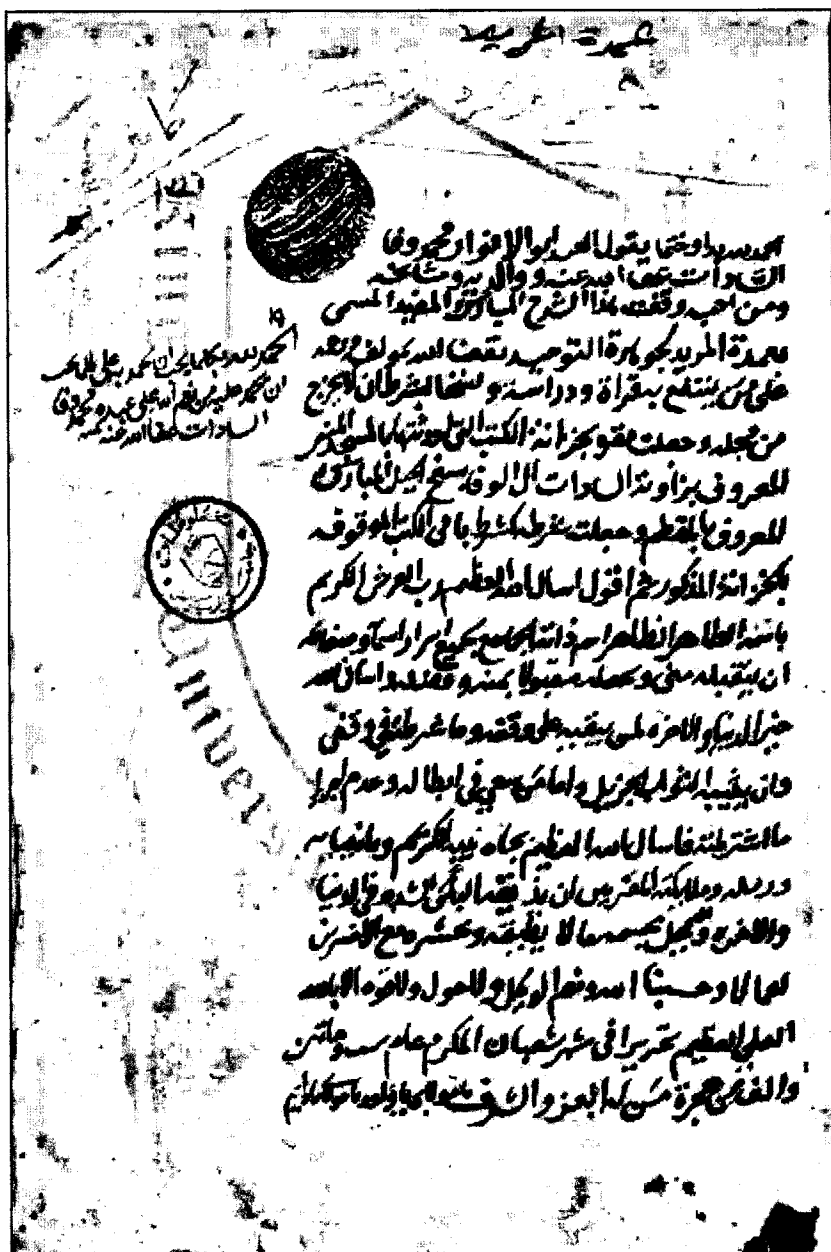 عمدة المريد
الحمد لله بدا وختما يقول العبد ابو الانوار محمد وفا
السادات عفا الله عنه ووالديه ومشايخه
ومن احبه وقفت هذا الشرح المبارك المفيد المسمى
بعمدة المريد بجوهرة التوحيد نفعنا الله بمولفه وجعله
على من ينتفع به قراة ودراسة ونسخا بشرط ان لا يخرج
من محله وجعلت مقره بخزانة الكتب التي احدثتها بالمسجد المنير
المعروف بزاوية السادات ال الوفا بسفح الجبل المبارك
المعروف بالمقطم وجعلت شرطه كشرط باقي الكتب الموقوفه
بالخزانة المذكور ثم اقول اسال الله العظيم رب العرش الكريم
باسمه الطاهر الظاهر اسم ذاته الجامع بجميع اسرار اسمائه وصفاته
ان يتقبله مني ويجعله مقبولا بمنه وفضله واسال الله
خير الدنيا والاخره لمن يبقيه على وقفه وما شرطته في وقفي
وان يثيبه الثواب الجزيل واما من سعى في ابطاله وعدم اجرا
ما اشترطته فاسال الله العظيم بجاه نبيه الكريم وبانبيائه
ورسله وملايكته المقربين ان يذيقه الباس الشديد في الدنيا
والاخره ويحمل بجسمه ما لا يطيقه ويحشره مع الاخسرين
اعمالا وحسبنا الله ونعم الوكيل ولا حول ولا قوة الا بالله
العلي العظيم تحريرا في شهر شعبان المكرم عام سنة وماتين
والف من هجرة من له العز والشرف
الحمد لله كما يحب ان يحمد وصلى على
ان محمد عليه من نعم الله على عبده محمد وفا
السادات عفا الله عنه
Univers